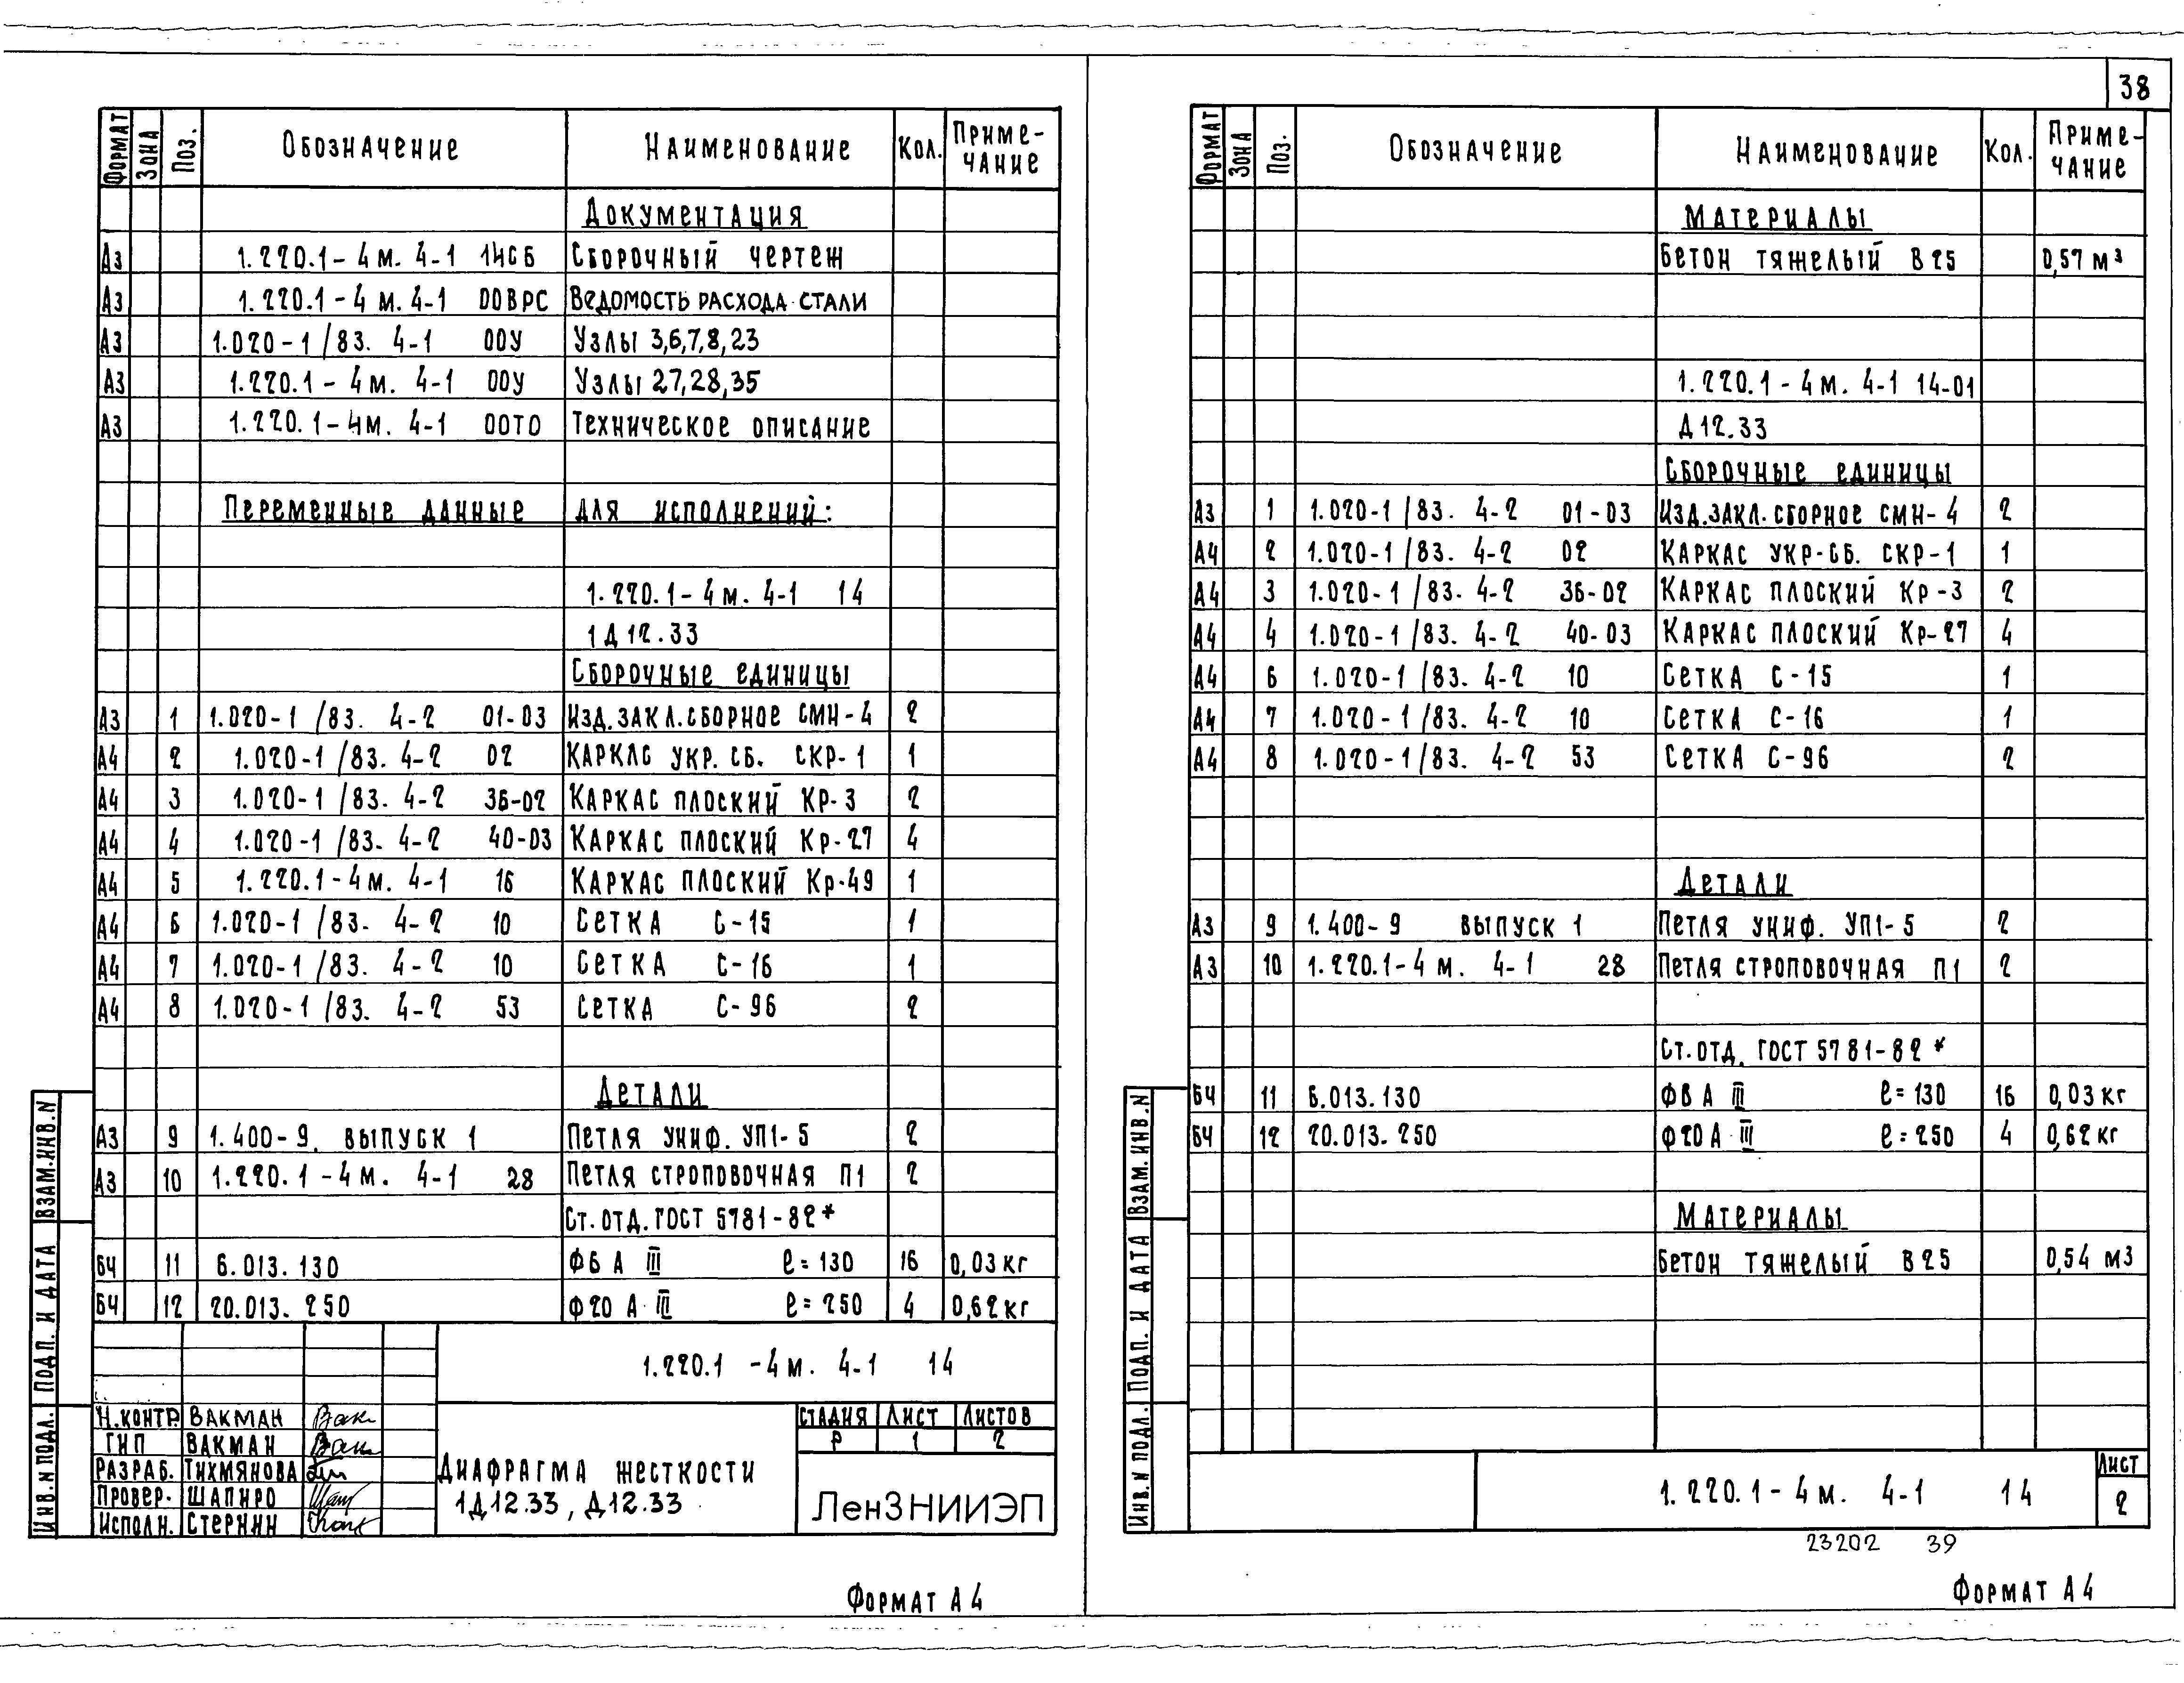 38
Формат Зона Поз. Обозначение Наименование Кол. Примечание
Документация
А3 1.220.1-4м. 4-1 14СБ Сборочный чертеж
А3 1.220.1-4м. 4-1 00ВРС Ведомость расхода стали
А3 1.020-1/83. 4-1 00У Узлы 3,6,7,8,23
А3 1.220.1-4м. 4-1 00У Узлы 27,28,35
А3 1.220.1-4м. 4-1 00ТО Техническое описание
Переменные данные для исполнений:
1.220.1-4м. 4-1 14
1Д12.33
Сборочные единицы
А3 1 1.020-1/83. 4-2 01-03 Изд.закл.сборное СМН-4 2
А4 2 1.020-1/83. 4-2 02 Каркас укр. сб. СКР-1 1
А4 3 1.020-1/83. 4-2 36-02 Каркас плоский Кр-3 2
А4 4 1.020-1/83. 4-2 40-03 Каркас плоский Кр-27 4
А4 5 1.220.1-4м. 4-1 16 Каркас плоский Кр-49 1
А4 6 1.020-1/83. 4-2 10 Сетка С-15 1
А4 7 1.020-1/83. 4-2 10 Сетка С-16 1
А4 8 1.020-1/83. 4-2 53 Сетка С-96 2
Детали
А3 9 1.400-9. выпуск 1 Петля униф. УП1-5 2
А3 10 1.220.1-4м. 4-1 28 Петля строповочная П1 2
Ст.отд.ГОСТ 5781-82*
БЧ 11 6.013.130 Ф6 А III ℓ=130 16 0,03кг
БЧ 12 20.013.250 Ф20 А III ℓ=250 4 0,62кг
1.220.1-4м. 4-1 14
Н.контр. Вакман
ГИП Вакман
Разраб. Тихмянова
Провер. Шапиро
Исполн. Стернин
Диафрагма жесткости
1Д12.33, Д12.33
Стадия Лист Листов
Р 1 2
ЛенЗНИИЭП
Инв.N подл. Подп. и дата Взам.инв.N
Формат А4
Формат Зона Поз. Обозначение Наименование Кол. Примечание
Материалы
Бетон тяжелый В25 0,57 м³
1.220.1-4м. 4-1 14-01
Д12.33
Сборочные единицы
А3 1 1.020-1/83. 4-2 01-03 Изд.закл.сборное СМН-4 2
А4 2 1.020-1/83. 4-2 02 Каркас укр-сб. СКР-1 1
А4 3 1.020-1/83. 4-2 36-02 Каркас плоский Кр-3 2
А4 4 1.020-1/83. 4-2 40-03 Каркас плоский Кр-27 4
А4 6 1.020-1/83. 4-2 10 Сетка С-15 1
А4 7 1.020-1/83. 4-2 10 Сетка С-16 1
А4 8 1.020-1/83. 4-2 53 Сетка С-96 2
Детали
А3 9 1.400-9 выпуск 1 Петля униф. УП1-5 2
А3 10 1.220.1-4м. 4-1 28 Петля строповочная П1 2
Ст.отд. ГОСТ 5781-82*
БЧ 11 6.013.130 Ф6 А III ℓ=130 16 0,03кг
БЧ 12 20.013.250 Ф20 А III ℓ=250 4 0,62кг
Материалы
Бетон тяжелый В25 0,54 м3
1.220.1-4м. 4-1 14
Лист
2
Инв.N подл. Подп. и дата Взам.инв.N
23202 39
Формат А4